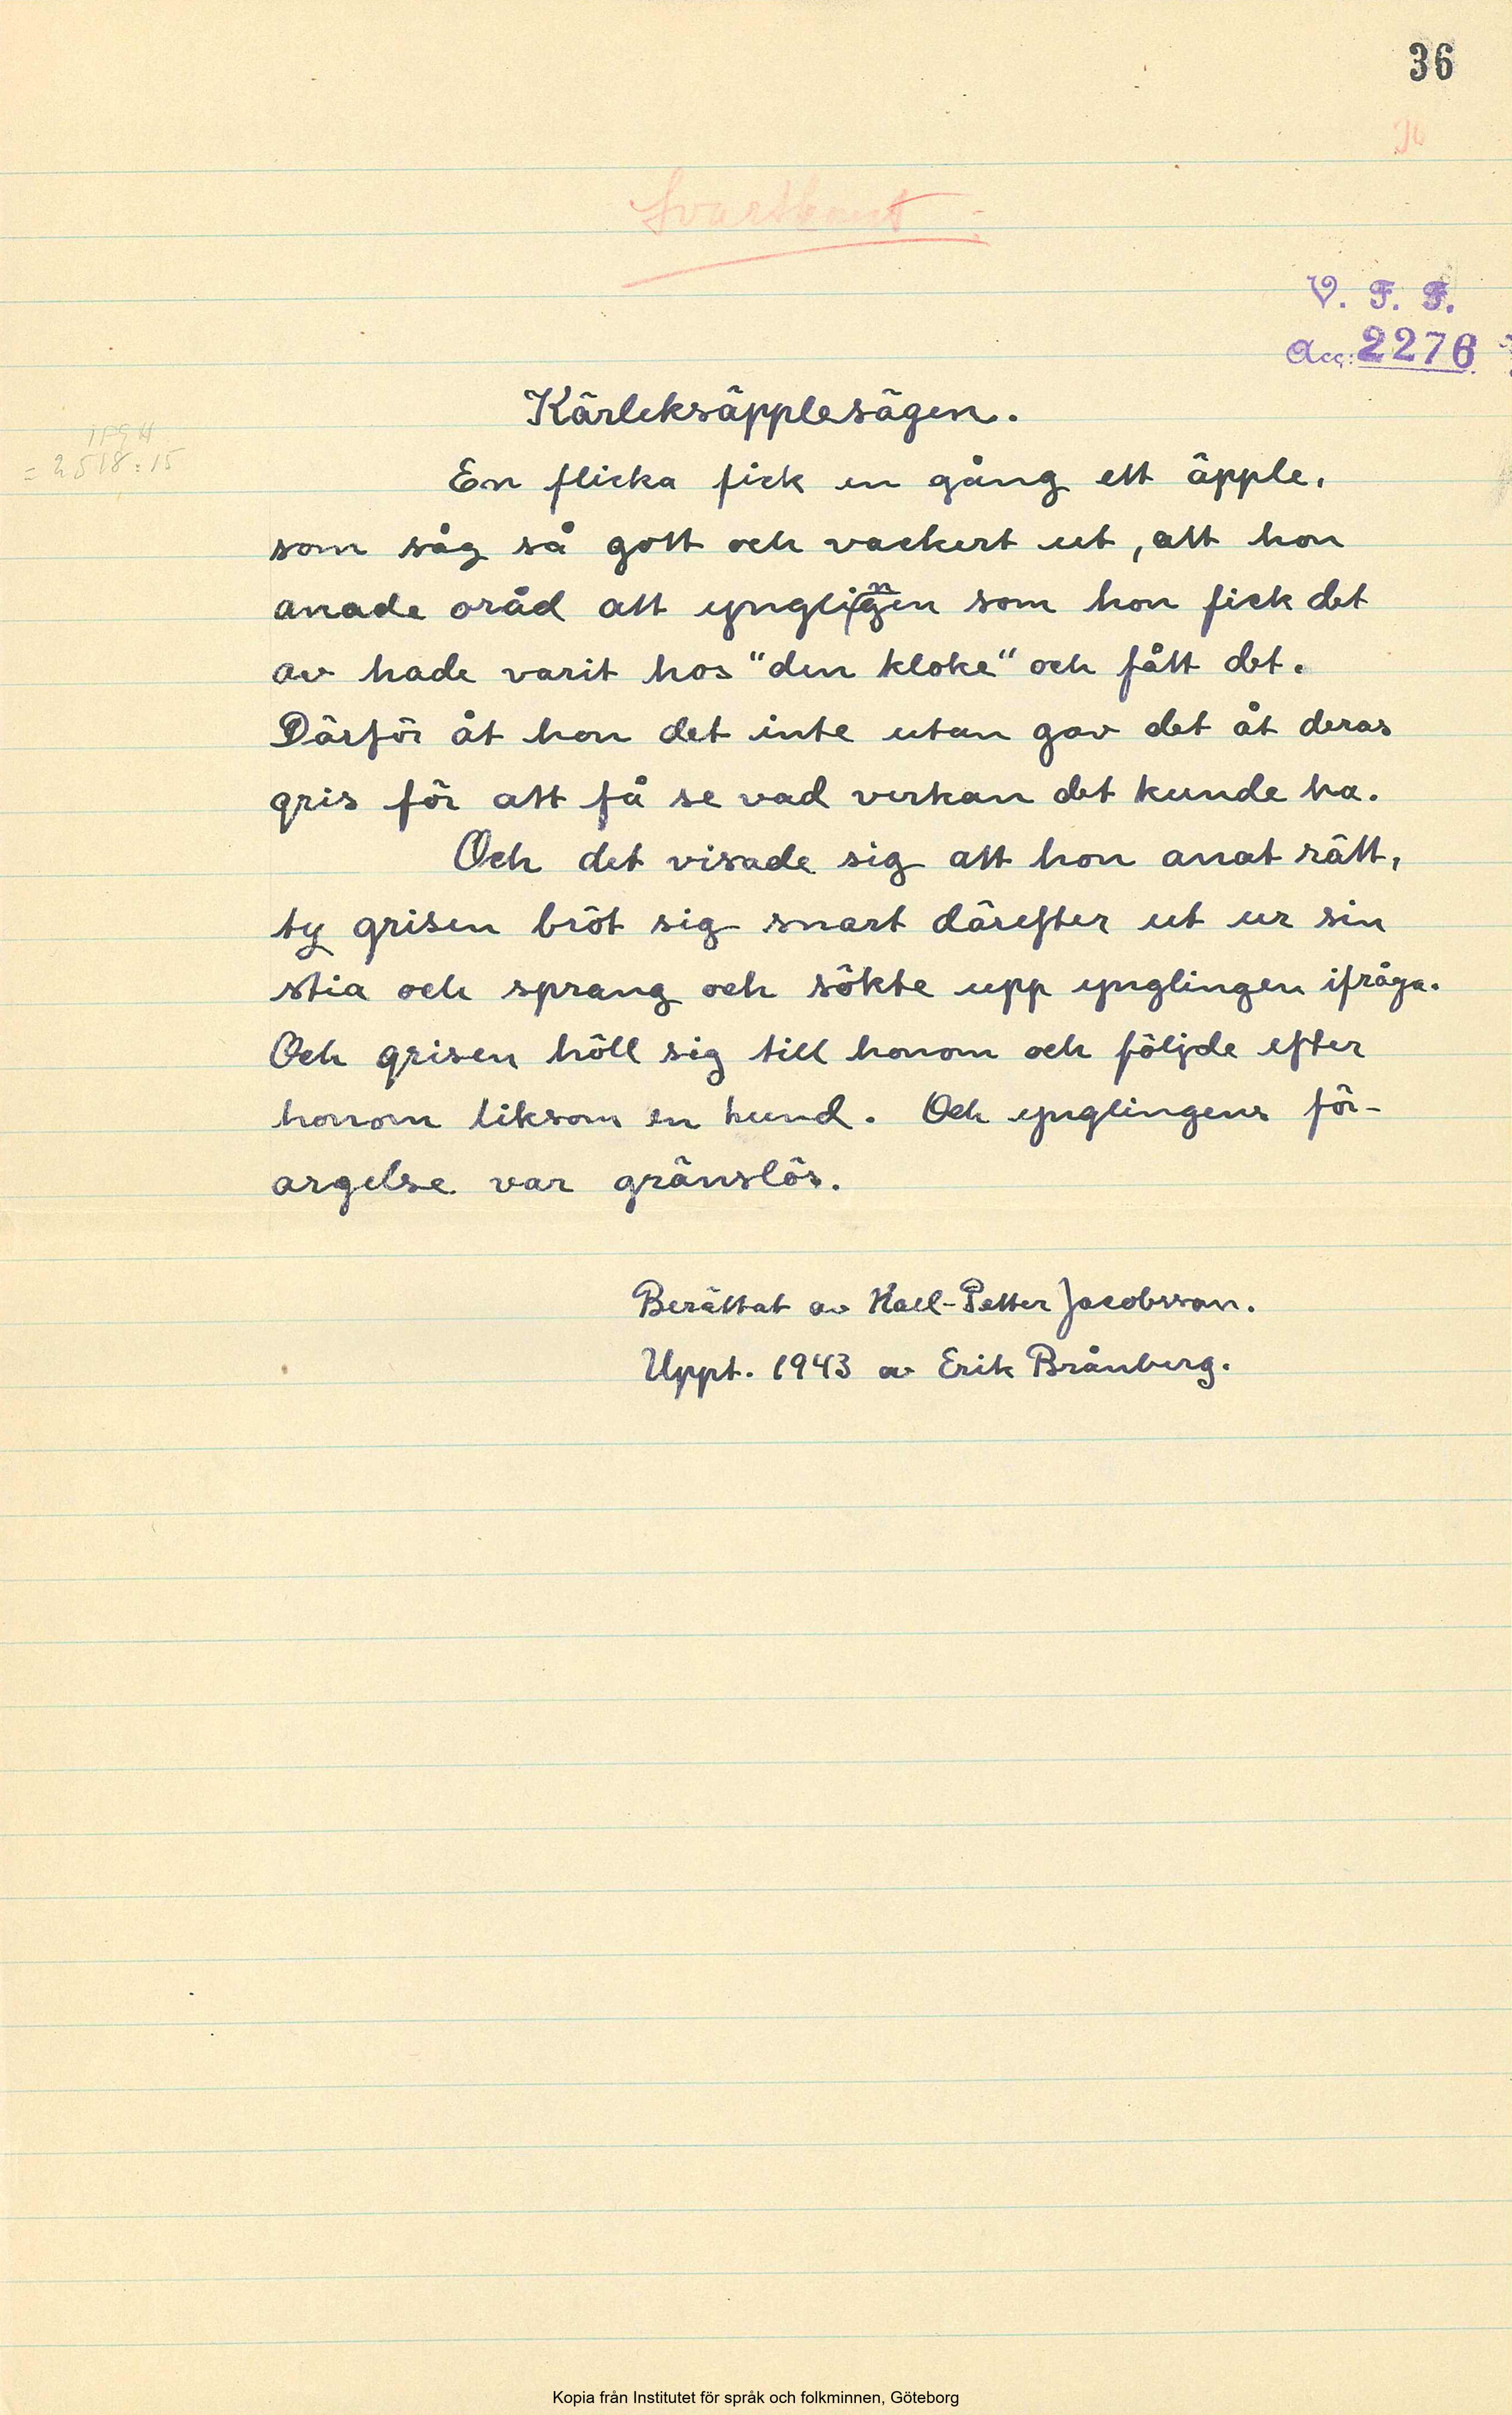 36
Svartkonst
V. F. F.
Acc: 2276
Kärleksäpplesägen.
= 2518:15
En flicka fick en gång ett äpple,
som såg så gott och vackert ut, att hon
anade oråd att ynglingen som hon fick det
av hade varit hos "den kloke" och fått det.
Därför åt hon det inte utan gav det åt deras
gris för att få se vad verkan det kunde ha.
Och det visade sig att hon anat rätt,
ty grisen bröt sig snart därefter ut ur sin
stia och sprang och sökte upp ynglingen ifråga.
Och grisen höll sig till honom och följde efter
honom liksom en hund. Och ynglingens för-
argelse var gränslös.
Berättat av Karl-Petter Jacobsson.
Uppt. 1943 av Erik Brånberg.
Kopia från Institutet för språk och folkminnen, Göteborg